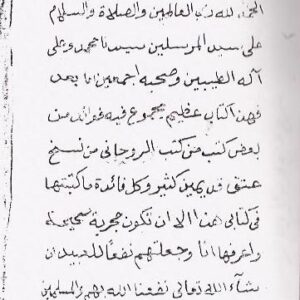 الحمد لله رب العالمين والصلاة والسلام
على سيد المرسلين سيدنا محمد وعلى
آله الطيبين وصحبه اجمعين اما بعد
فهذا كتاب عظيم مجموع فيه فوائد من
بعض كتب من كتب الروحاني من نسخ
عتق قديمين كثير وكل فائدة ما كتبتها
في كتابي هذا الا ان تكون مجربة صحيحة
واعرفها انا وجعلتهم نفعا للعبيد ان
شاء الله تعالى نفعنا الله بهم والمسلمين